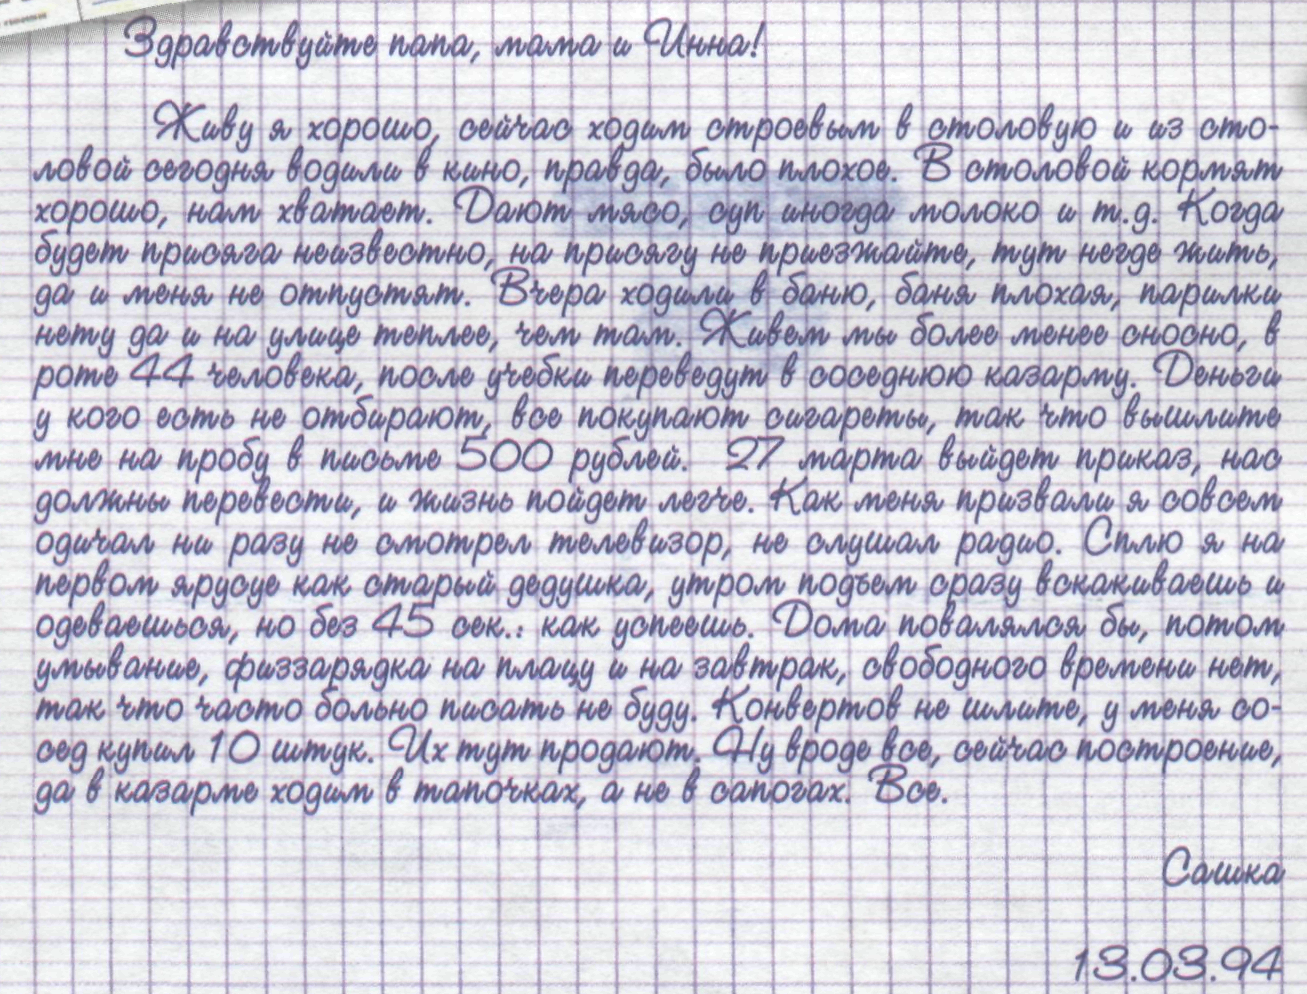 Здравствуйте папа, мама и Инна!
Живу я хорошо, сейчас ходим строевым в столовую и из сто-
ловой сегодня водили в кино, правда, было плохое. В столовой кормят
хорошо, нам хватает. Дают мясо, суп иногда молоко и т.д. Когда
будет присяга неизвестно, на присягу не приезжайте, тут негде жить,
да и меня не отпустят. Вчера ходили в баню, баня плохая, парилки
нету да и на улице теплее, чем там. Живем мы более менее сносно, в
роте 44 человека, после учебки переведут в соседнюю казарму. Деньги
у кого есть не отбирают, все покупают сигареты, так что вышлите
мне на пробу в письме 500 рублей. 27 марта выйдет приказ, нас
должны перевести, и жизнь пойдет легче. Как меня призвали я совсем
одичал ни разу не смотрел телевизор, не слушал радио. Сплю я на
первом ярусуе как старый дедушка, утром подъем сразу вскакиваешь и
одеваешься, но без 45 сек.: как успеешь. Дома повалялся бы, потом
умывание, физзарядка на плацу и на завтрак, свободного времени нет,
так что часто больно писать не буду. Конвертов не шлите, у меня со-
сед купил 10 штук. Их тут продают. Ну вроде все, сейчас построение,
да в казарме ходим в тапочках, а не в сапогах. Все.
Сашка
13.03.94